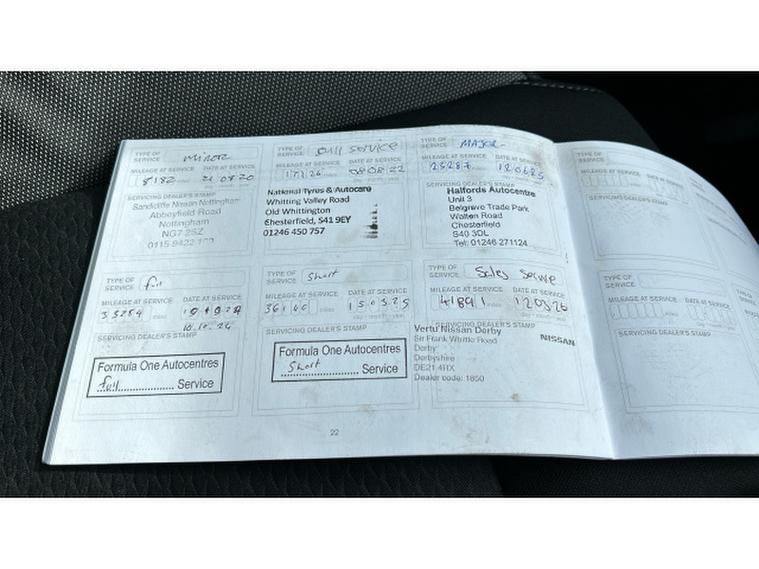 TYPE OF SERVICE
minor
MILEAGE AT SERVICE DATE AT SERVICE
8182 miles 21 08 20
SERVICING DEALER'S STAMP
Sandicliffe Nissan Nottingham
Abbeyfield Road
Nottingham
NG7 2SZ
0115 9422
TYPE OF SERVICE
full service
MILEAGE AT SERVICE DATE AT SERVICE
17126 miles 08 08 22
National Tyres & Autocare
Whitting Valley Road
Old Whittington
Chesterfield, S41 9EY
01246 450 757
TYPE OF SERVICE
MAJOR
MILEAGE AT SERVICE DATE AT SERVICE
25287 miles 12 06 23
SERVICING DEALER'S STAMP
Halfords Autocentre
Unit 3
Belgrave Trade Park
Walton Road
Chesterfield
S40 3DL
Tel: 01246 271124
TYPE OF SERVICE
MILEAGE AT SERVICE DATE AT SERVICE
SERVICING DEALER'S STAMP
TYPE OF SERVICE
full
MILEAGE AT SERVICE DATE AT SERVICE
33254 miles
10.10.24
SERVICING DEALER'S STAMP
Formula One Autocentres
full Service
TYPE OF SERVICE
short
MILEAGE AT SERVICE DATE AT SERVICE
36140 miles 15 03 25
SERVICING DEALER'S STAMP
Formula One Autocentres
Short Service
TYPE OF SERVICE
Sales Service
MILEAGE AT SERVICE DATE AT SERVICE
41891 miles 12 03 26
SERVICING DEALER'S STAMP
Vertu Nissan Derby
Sir Frank Whittle Road
NISSAN
Derby
Derbyshire
DE21 4RX
Dealer code: 1850
TYPE OF SERVICE
MILEAGE AT SERVICE DATE AT SERVICE
SERVICING DEALER'S STAMP
22